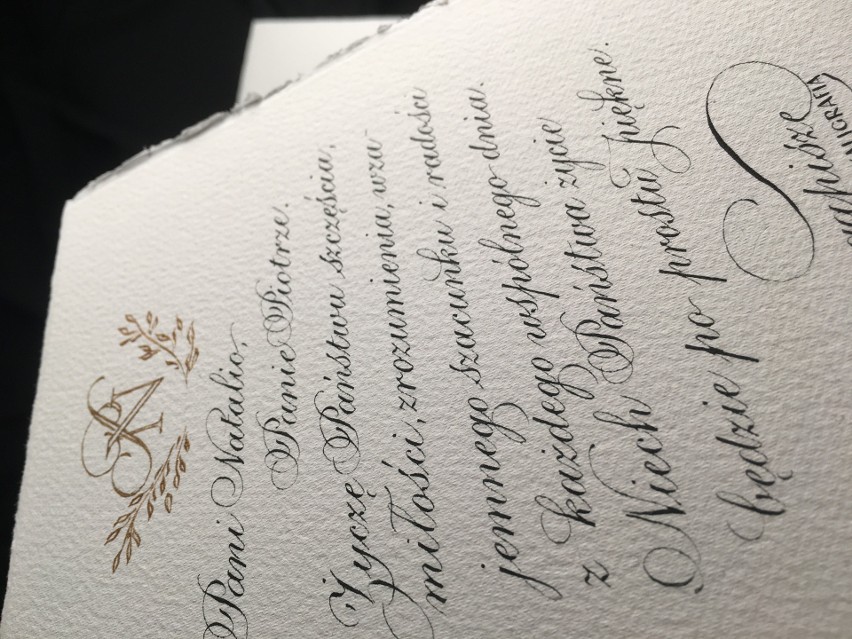 Pani Natalio,
Panie Piotrze.
Życzę Państwu szczęścia,
miłości, zrozumienia, wza-
jemnego szacunku i radości
z każdego wspólnego dnia.
Niech Państwa życie
będzie po prostu piękne.